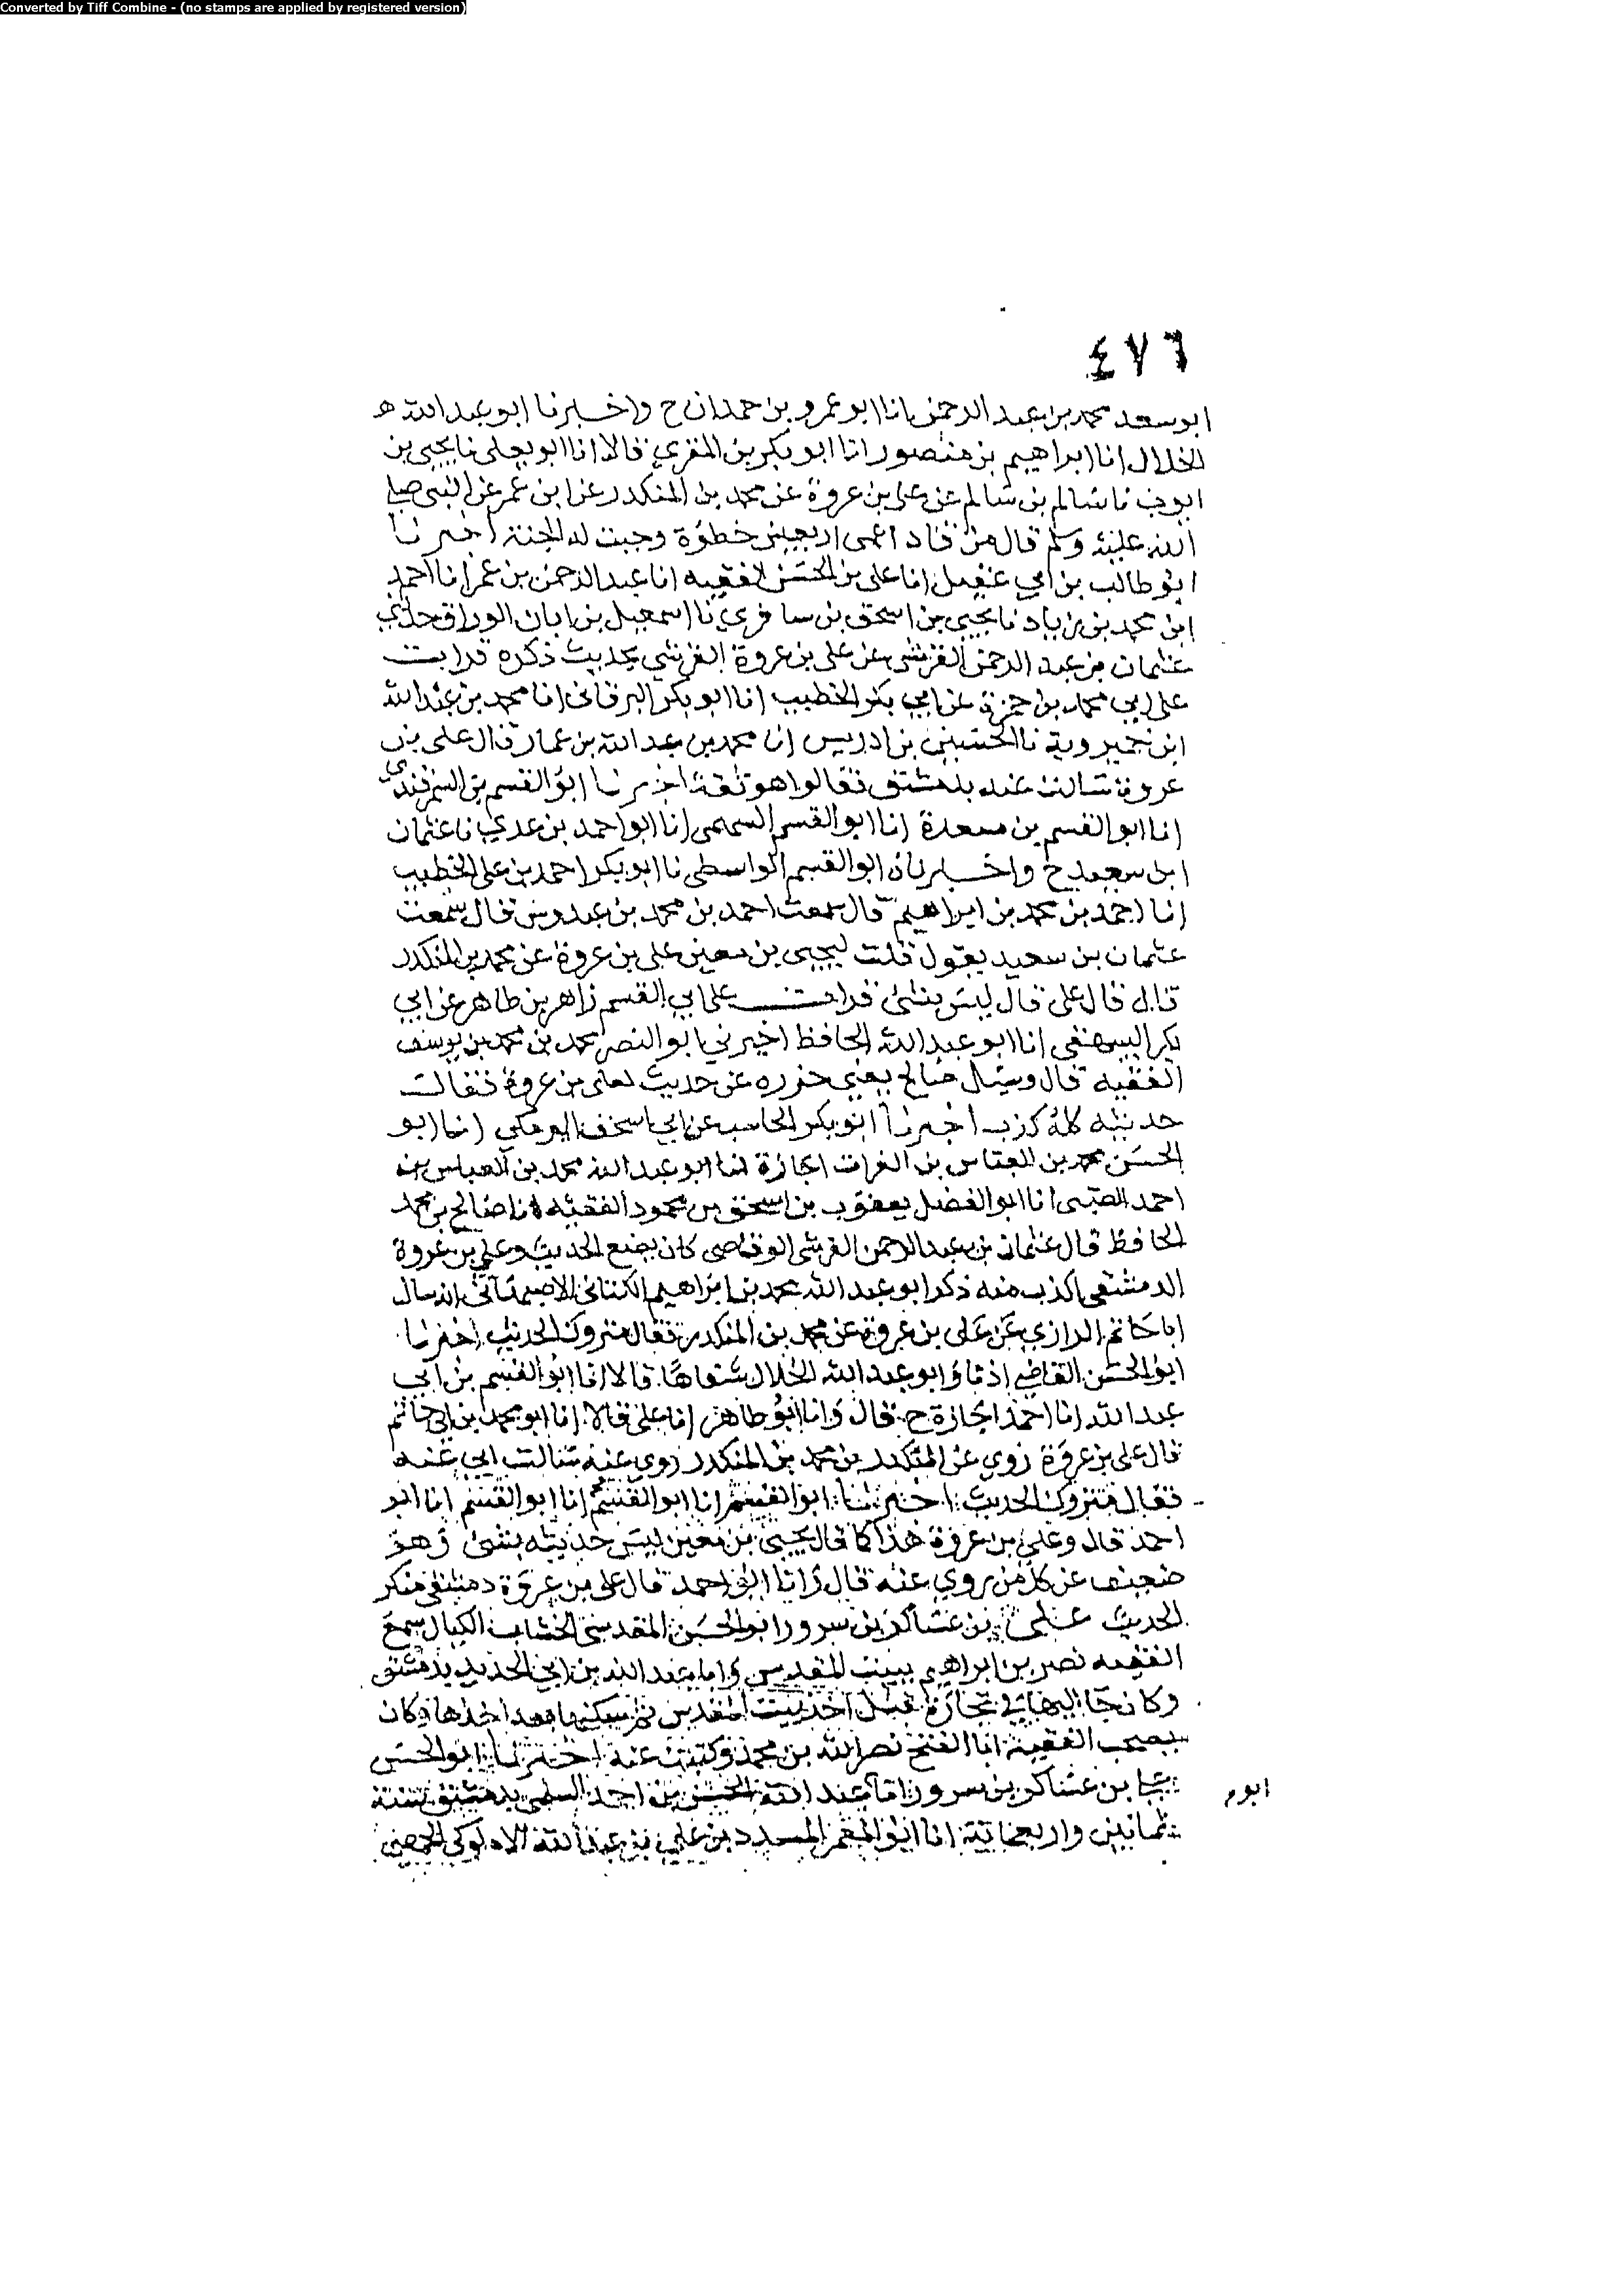 Converted by Tiff Combine - (no stamps are applied by registered version)
٤٧٦
ابو سعد محمد بن عبد الرحمن انا ابو عمرو بن حمدان ح واخبرنا ابو عبد الله
الخلال انا ابراهيم بن منصور انا ابو بكر بن المقري قالا انا ابو يعلى نا يحيى بن
ايوب نا سالم بن سالم عن علي بن عروة عن محمد بن المنكدر عن ابن عمر عن النبي صلى
الله عليه وسلم قال من قاد اعمى اربعين خطوة وجبت له الجنة اخبرنا
ابو طالب بن ابي عقيل انا علي بن الحسن الفقيه انا عبد الرحمن بن عمر انا احمد
ابن محمد بن زياد نا يحيى بن اسحق بن سافري نا اسمعيل بن ابان الوراق حدثني
عثمان بن عبد الرحمن القرشي عن علي بن عروة القرشي بحديث ذكره قرات
على ابي محمد بن حمزة عن ابي بكر الخطيب انا ابو بكر البرقاني انا محمد بن عبد الله
ابن خميرويه نا الحسين بن ادريس انا محمد بن عبد الله بن عمار قال علي بن
عروة سالت عنه بدمشق فقالوا هو ثقة اخبرنا ابو القسم بن السمرقندي
انا ابو القسم بن مسعدة انا ابو القسم السهمي انا ابو احمد بن عدي نا عثمان
ابن سعيد ح واخبرنا ابو القسم الواسطي نا ابو بكر احمد بن علي الخطيب
انا احمد بن محمد بن ابراهيم قال سمعت احمد بن محمد بن عبدوس قال سمعت
عثمان بن سعيد يقول قلت ليحيى بن معين علي بن عروة عن محمد بن المنكدر
قال قال علي قال ليس بشئ قرات على ابي القسم زاهر بن طاهر عن ابي
بكر البيهقي انا ابو عبد الله الحافظ اخبرني ابو النصر محمد بن محمد بن يوسف
الفقيه قال وسئل صالح يعني جزره عن حديث لعلي بن عروة فقال
حديثه كله كذب اخبرنا ابو بكر الحاسب عن ابي اسحق البرمكي انا ابو
الحسن محمد بن العباس بن الفرات اجازة انا ابو عبد الله محمد بن العباس بن
احمد الضبي انا ابو الفضل يعقوب بن اسحق بن محمود الفقيه انا صالح بن محمد
الحافظ قال عثمان بن عبد الرحمن القرشي الوقاصي كان يضع الحديث وعلي بن عروة
الدمشقي اكذب منه ذكر ابو عبد الله محمد بن ابراهيم الكتاني الاصبهاني انه سال
ابا حاتم الرازي عن علي بن عروة عن محمد بن المنكدر فقال متروك الحديث اخبرنا
ابو الحسن القاضي اذنا وابو عبد الله الخلال شفاها قالا انا ابو القسم بن ابي
عبد الله انا احمد اجازة ح قال وانا ابو طاهر انا علي قالا انا ابو محمد بن ابي حاتم
قال علي بن عروة روى عن المنكدر بن محمد بن المنكدر روى عنه سالت ابي عنه
فقال متروك الحديث اخبرنا ابو القسم انا ابو القسم انا ابو القسم انا ابو
احمد قال وعلي بن عروة هذا كما قال يحيى بن معين ليس حديثه بشئ وهو
ضعيف عن كل من روى عنه قال وانا ابو احمد قال علي بن عروة دمشقي منكر
الحديث علي بن عساكر بن سرور ابو الحسن المقدسي الخشاب الكيال سمع
الفقيه نصر بن ابراهيم ببيت المقدس وابا عبد الله بن ابي الحديد بدمشق
وكان جا اليها في تجارة قبل اخذ بيت المقدس ثم سكنها بعد اخذها وكان
يصحب الفقيه ابا الفتح نصر الله بن محمد وكتبت عنه اخبرنا ابو الحسن
علي بن عساكر بن سرور انا عبد الله الحسن بن احمد السلمي بدمشق سنة
ابوم
ثمانين واربعمائة انا ابو المعمر المسدد بن علي بن عبد الله الاملوكي الحمصي